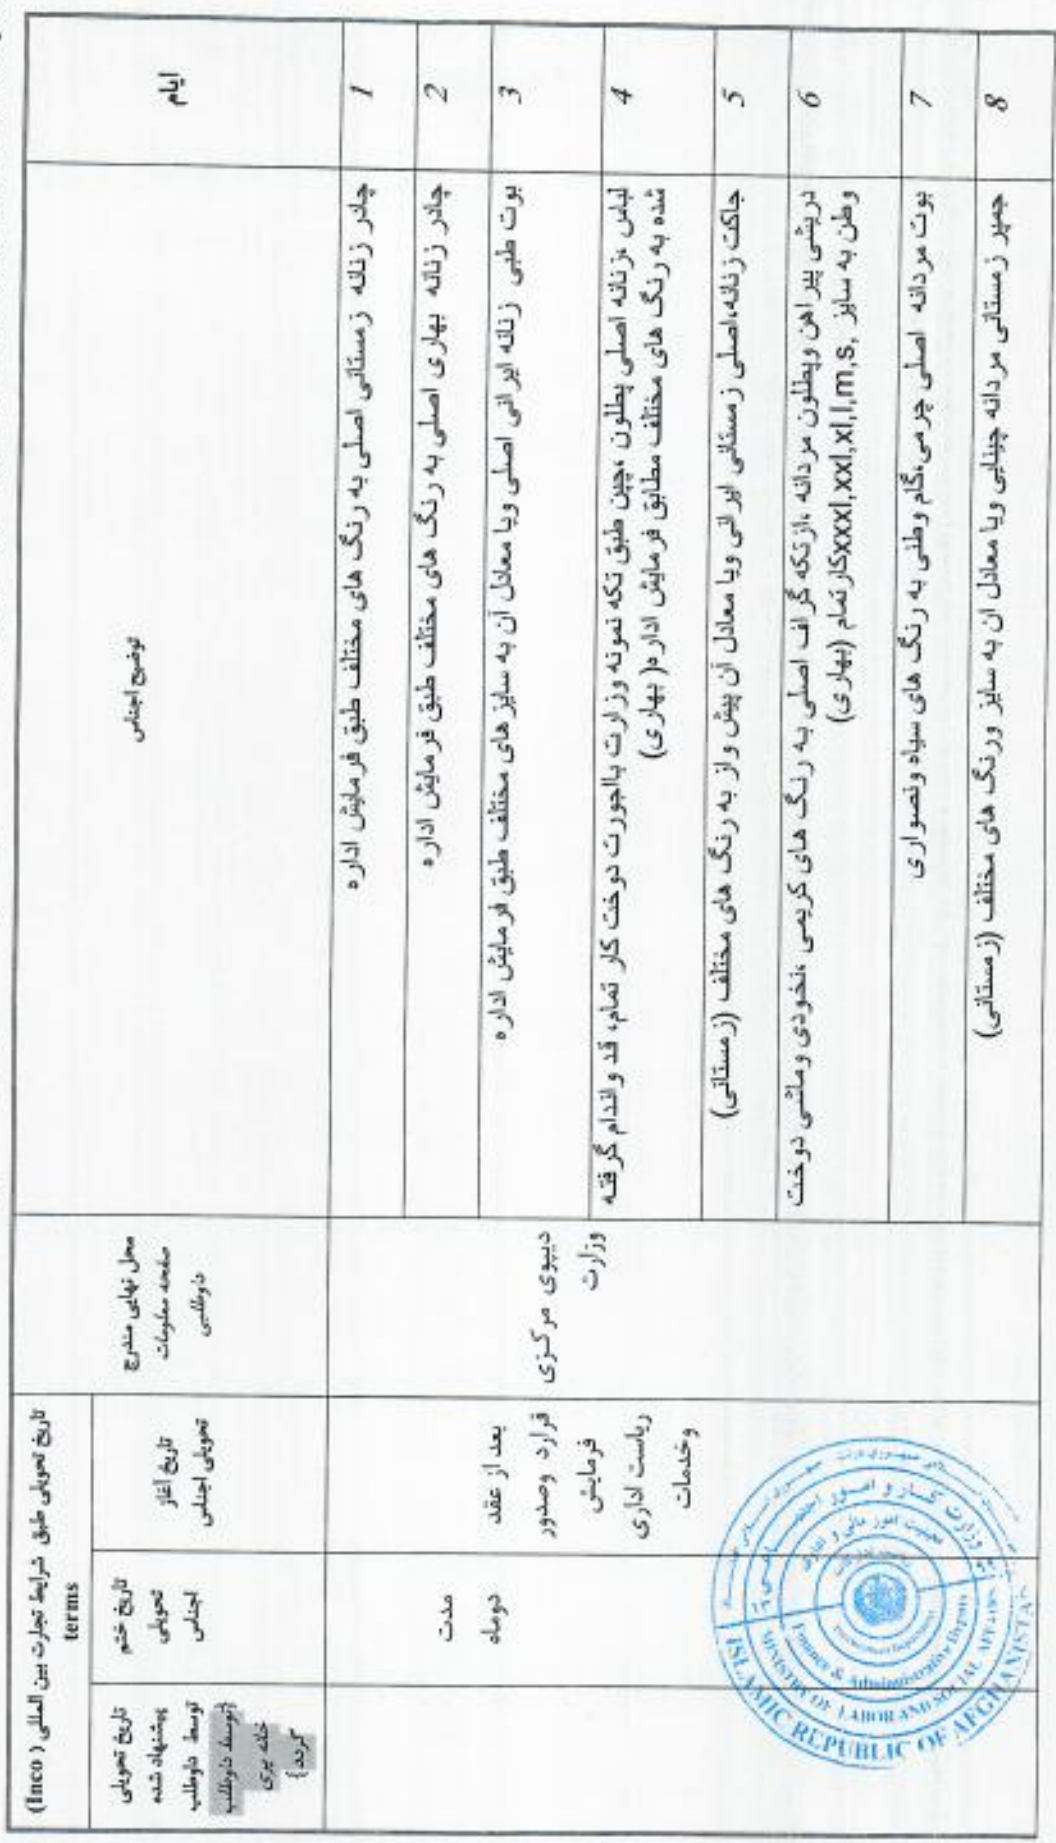 ایام
توضیح اجناس
محل نهایی مندرج
صفحه معلومات
داوطلبی
تاریخ تحویلی طبق شرایط تجارت بین المللی ( Inco)
terms
تاریخ آغاز
تحویلی اجناس
تاریخ ختم
تحویلی
اجناس
تاریخ تحویلی
پیشنهاد شده
توسط داوطلب
{توسط داوطلب
خانه پری
گردد}
1
چادر زنانه زمستانی اصلی به رنگ های مختلف طبق فرمایش اداره
2
چادر زنانه بهاری اصلی به رنگ های مختلف طبق فرمایش اداره
3
بوت طبی زنانه ایرانی اصلی ویا معادل آن به سایز های مختلف طبق فرمایش اداره
4
لباس ،زنانه اصلی پطلون ،چپن طبق تکه نمونه وزارت بااجورت دوخت کار تمام، قد واندام گرفته
شده به رنگ های مختلف مطابق فرمایش اداره( بهاری)
5
جاکت زنانه،اصلی زمستانی ایرانی ویا معادل آن پیش واز به رنگ های مختلف (زمستانی)
6
دریشی پیراهن وپطلون مردانه ،ازتکه گراف اصلی به رنگ های کریمی ،نخودی وماشی دوخت
وطن به سایز xxxl,xxl,xl,l,m,s,کارتمام (بهاری)
7
بوت مردانه اصلی چرمی،گام وطنی به رنگ های سیاه ونصواری
8
جمپر زمستانی مردانه چینایی ویا معادل ان به سایز ورنگ های مختلف (زمستانی)
دیپوی مرکزی
وزارت
بعد از عقد
قرارد وصدور
فرمایش
ریاست اداری
وخدمات
مدت
دوماه
وزارت کار و امور
معینیت امور مالی و اداری
Finance & Administrative
MINISTRY OF LABOR AND SOCIAL AFFAIRS
ISLAMIC REPUBLIC OF AFGHANISTAN